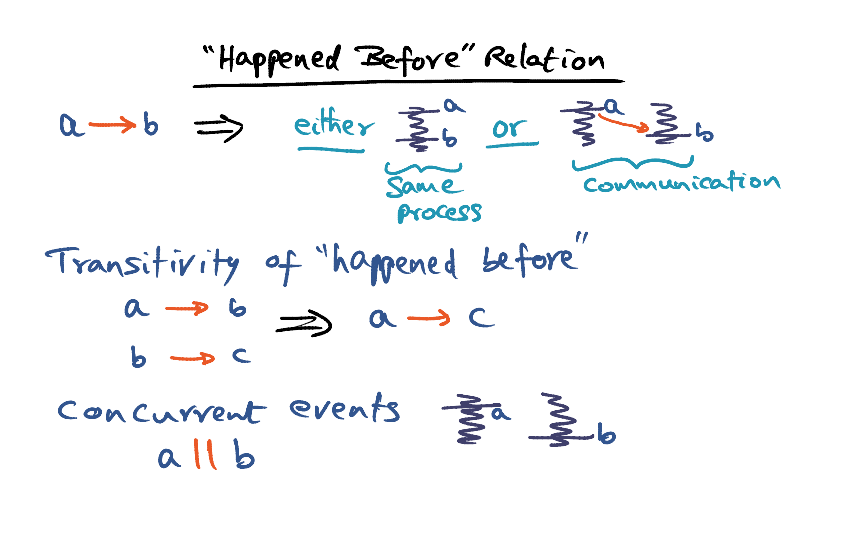 "Happened Before" Relation
a → b ⇒ either a b or a b
Same process
Communication
Transitivity of "happened before"
a → b
b → c
⇒ a → c
Concurrent events a b
a || b